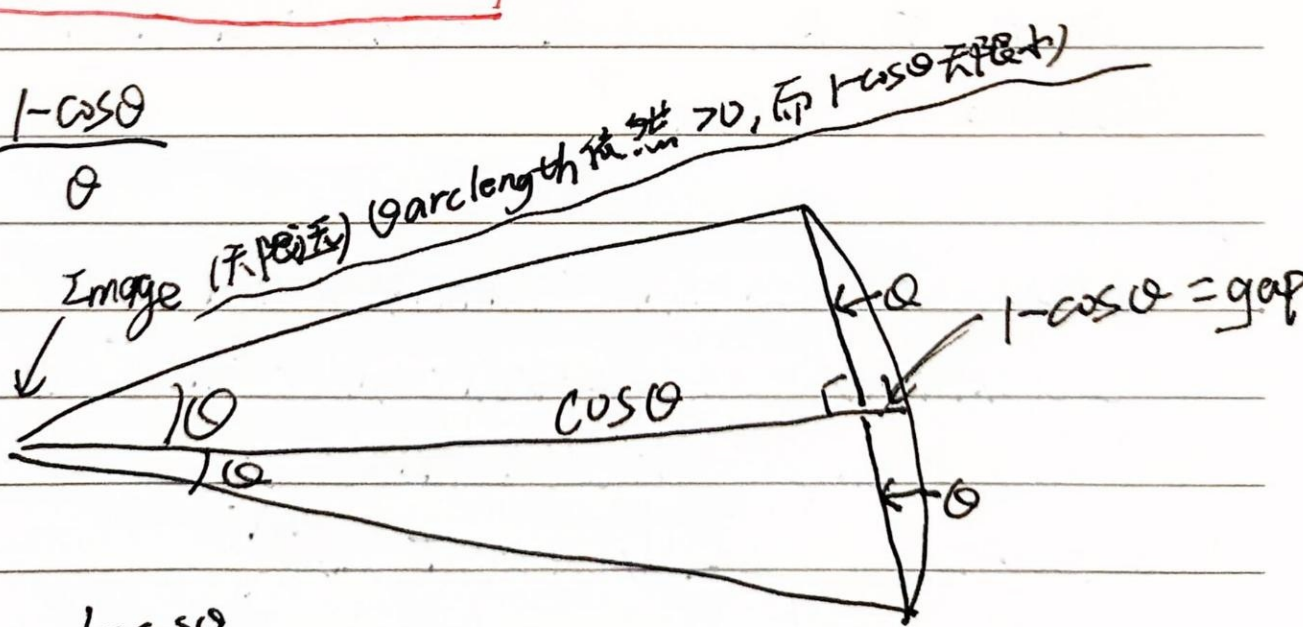 1-cosθ
θ
Image (无限远) (θ arclength 依然 >0, 而 1-cosθ 无限小)
θ
1-cosθ = gap
θ
cosθ
θ
θ